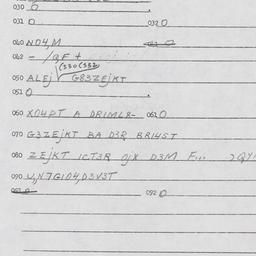 030 O
031 O 032 O
040 NO4,M
042 - /gF +
(330(332
050 ALEj G83ZEjKT
051 O
060 XO4PT A DRIML8- 061 O
070 G3ZEjKT BA D3R BRI4ST
080 ZEjKT ICT3R OjX D3M F...
090 U,,N7GIO4,D3V3T
092 O